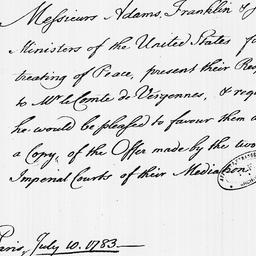 Messieurs Adams, Franklin &
Ministers of the United States fo
treating of Peace, present their Res
to Mr. le Comte de Vergennes, & requ
he would be pleased to favour them
a Copy, of the Offer made by the two
Imperial Courts of their Mediation.
Paris, July 10. 1783